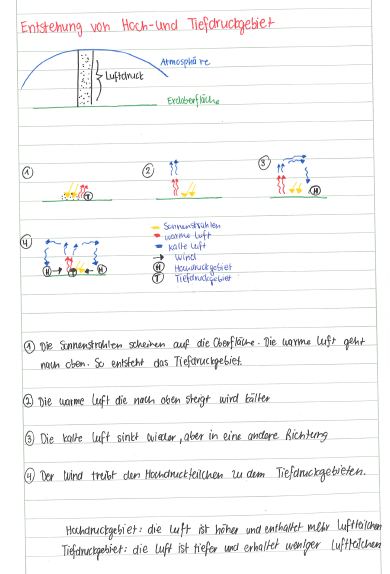 Entstehung von Hoch- und Tiefdruckgebiet
Atmosphäre
Luftdruck
Erdoberfläche
① ② ③
T
H
④
Sonnenstrahlen
warme Luft
kalte Luft
Wind
H Hochdruckgebiet
T Tiefdruckgebiet
H T H
① Die Sonnenstrahlen scheinen auf die Oberfläche. Die warme Luft geht
nach oben. So entsteht das Tiefdruckgebiet.
② Die warme Luft die nach oben steigt wird kälter
③ Die kalte Luft sinkt wieder, aber in eine andere Richtung
④ Der Wind treibt den Hochdruckteilchen zu dem Tiefdruckgebieten.
Hochdruckgebiet: die Luft ist höher und enthaltet mehr Luftteilchen
Tiefdruckgebiet: die Luft ist tiefer und erhaltet weniger Luftteilchen